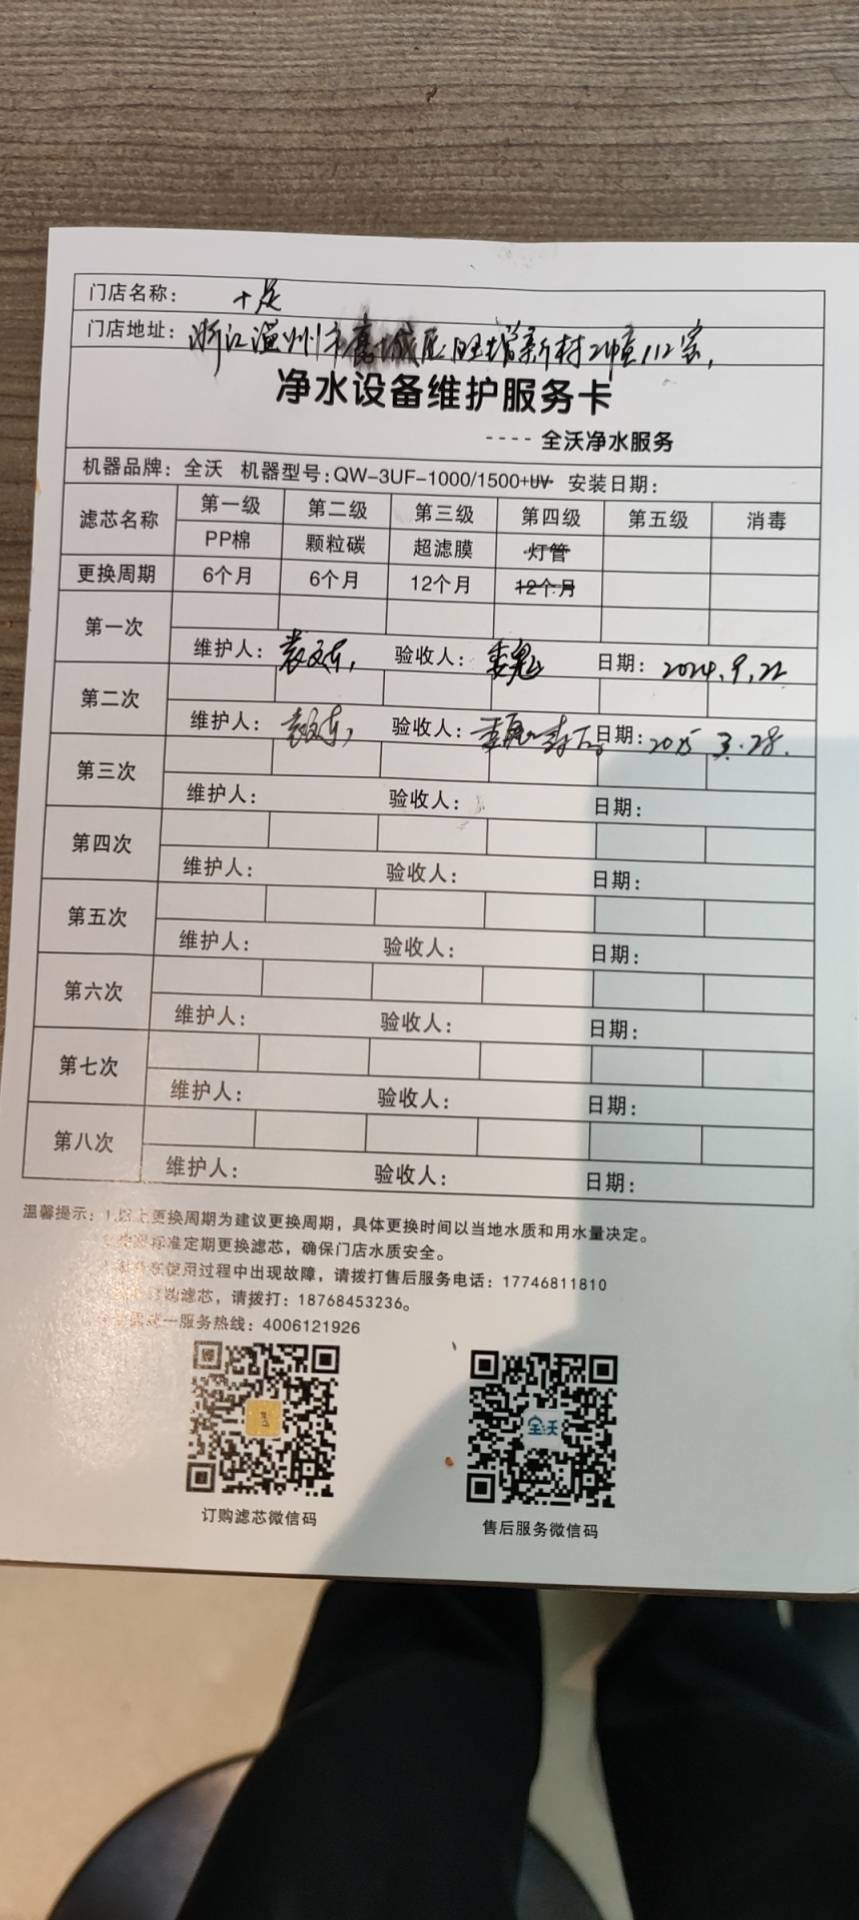 门店名称： 十足
门店地址：浙江温州市鹿城区旺增新村 112室
净水设备维护服务卡
---- 全沃净水服务
机器品牌：全沃 机器型号：QW-3UF-1000/1500+UV 安装日期：
滤芯名称 第一级 第二级 第三级 第四级 第五级 消毒
PP棉 颗粒碳 超滤膜 灯管
更换周期 6个月 6个月 12个月 12个月
第一次
维护人： 验收人： 日期：2024.9.22
第二次
维护人： 验收人： 日期：2025 3.28.
第三次
维护人： 验收人： 日期：
第四次
维护人： 验收人： 日期：
第五次
维护人： 验收人： 日期：
第六次
维护人： 验收人： 日期：
第七次
维护人： 验收人： 日期：
第八次
维护人： 验收人： 日期：
温馨提示：1.以上更换周期为建议更换周期，具体更换时间以当地水质和用水量决定。
标准定期更换滤芯，确保门店水质安全。
使用过程中出现故障，请拨打售后服务电话：17746811810
订购滤芯，请拨打：18768453236。
一服务热线：4006121926
全沃
订购滤芯微信码
售后服务微信码